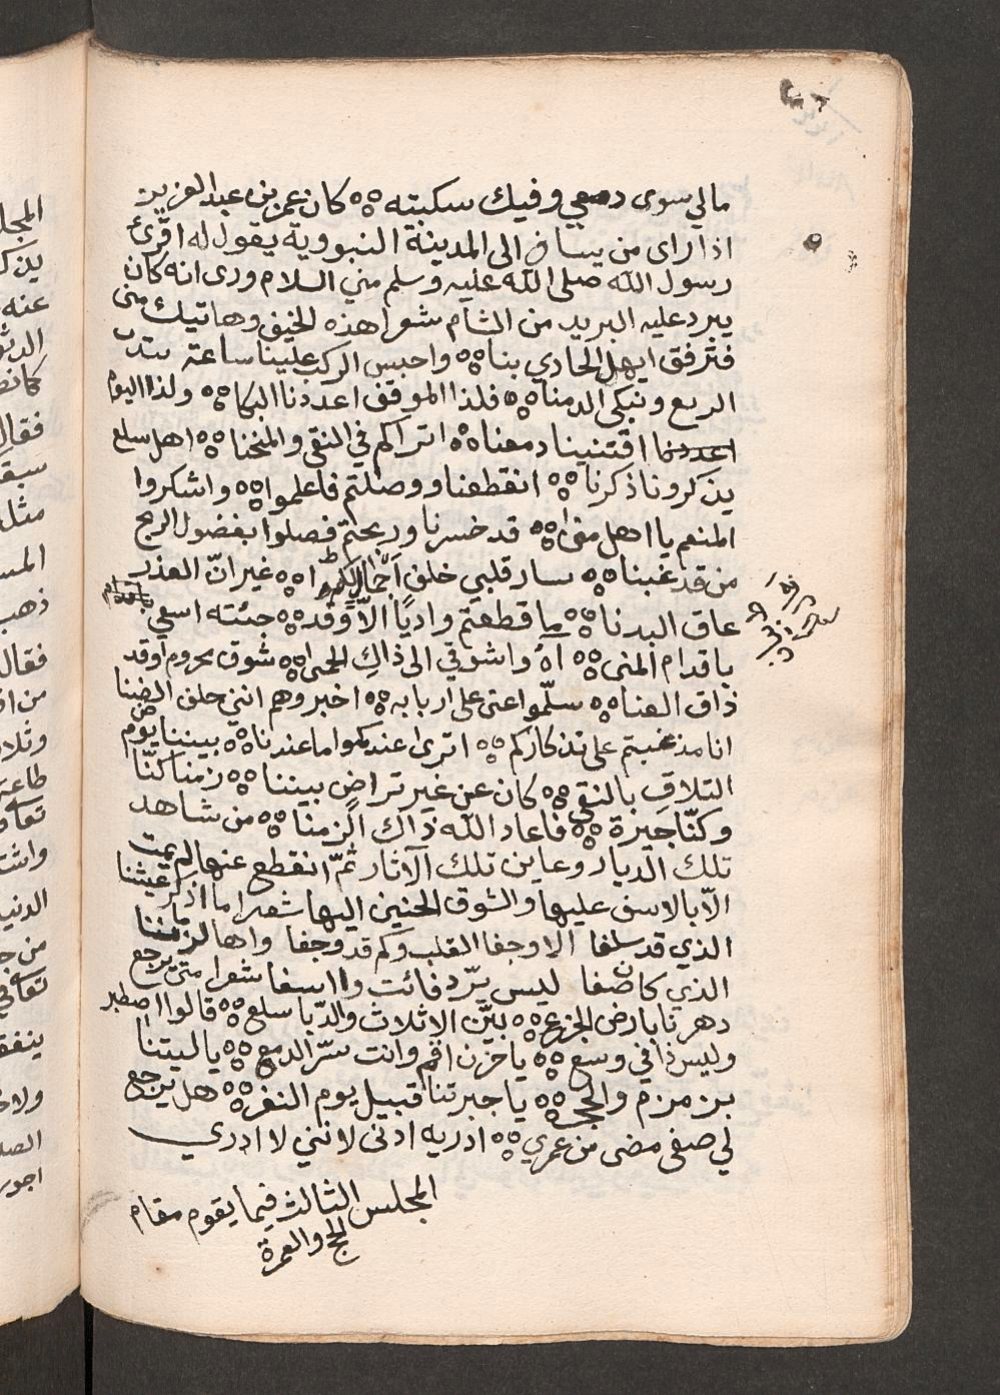 مالي سوى دمعي وفيك سكبته ۞ كان عمر بن عبد العزيز
اذا راى من يسافر الى المدينة النبووية يقول له اقرئ
رسول الله صلى الله عليه وسلم مني السلام وروى انه كان
يبرد عليه البريد من الشام شعرا هذه الخيف وهاتيك منى
فترفق ايهل الحادي بنا ۞ واحبس الركب علينا ساعة نندب
الربع ونبكي الدمنا ۞ فلذا الموقف اعددنا البكا ۞ ولذا اليوم
اعددنا اقتنينا دمعنا ۞ اتراكم في النقى والمنحنا ۞ اهل سلع
يذكرونا ذكرنا ۞ انقطعنا ووصلتم فاعلموا ۞ واشكروا
المنعم يا اهل منى ۞ قد خسرنا وربحتم فصلوا بفضول الربح
من قد غبنا ۞ سار قلبي خلف اجمالكم ۞ غير ان العذر
عاق البدنا ۞ ما قطعتم واديًا الّا وقد ۞ جئته اسعى
باقدام المنى ۞ اهٌ واشوقي الى ذاك الحمى ۞ شوق محروم وقد
ذاق العنا ۞ سلّموا عني على اربابه ۞ اخبروهم انني حلف الضنا
انا مذ غبتم على تذكاركم ۞ اترى عندكموا ما عندنا ۞ بيننا يوم
التلاقِ بالنقى ۞ كان عن غير تراضٍ بيننا ۞ زمنا كنّا
وكنّا جيرة ۞ فاعاد الله ذاك الزمنا ۞ من شاهد
تلك الديار وعاين تلك الآثار ثمّ انقطع عنها لم يمت
الّا بالاسف عليها والشوق الحنين اليها شعرا ما اذكر عيشنا
الذي قد سلفا الا وجفا القلب وكم قد وجفا واها لزماننا
الذي كان صفا ليس يردّ فائت وااسفا شعرا متى يرجع
دهرنا بارض الجزع ۞ بيّن الاثلاث والرّبا سلع ۞ قالوا اصطبر
وليس ذا في وسع ۞ يا حزن اقم وانت سرّ الدمع ۞ يا ليتنا
بزمزم والحجر ۞ يا جيرتنا قبيل يوم النفر ۞ هل يرجع
لي صفى مضى من عمري ۞ اذريه ادنى لانني لا ادري
المجلس الثالث فيما يقوم مقام
الحج والعمرة